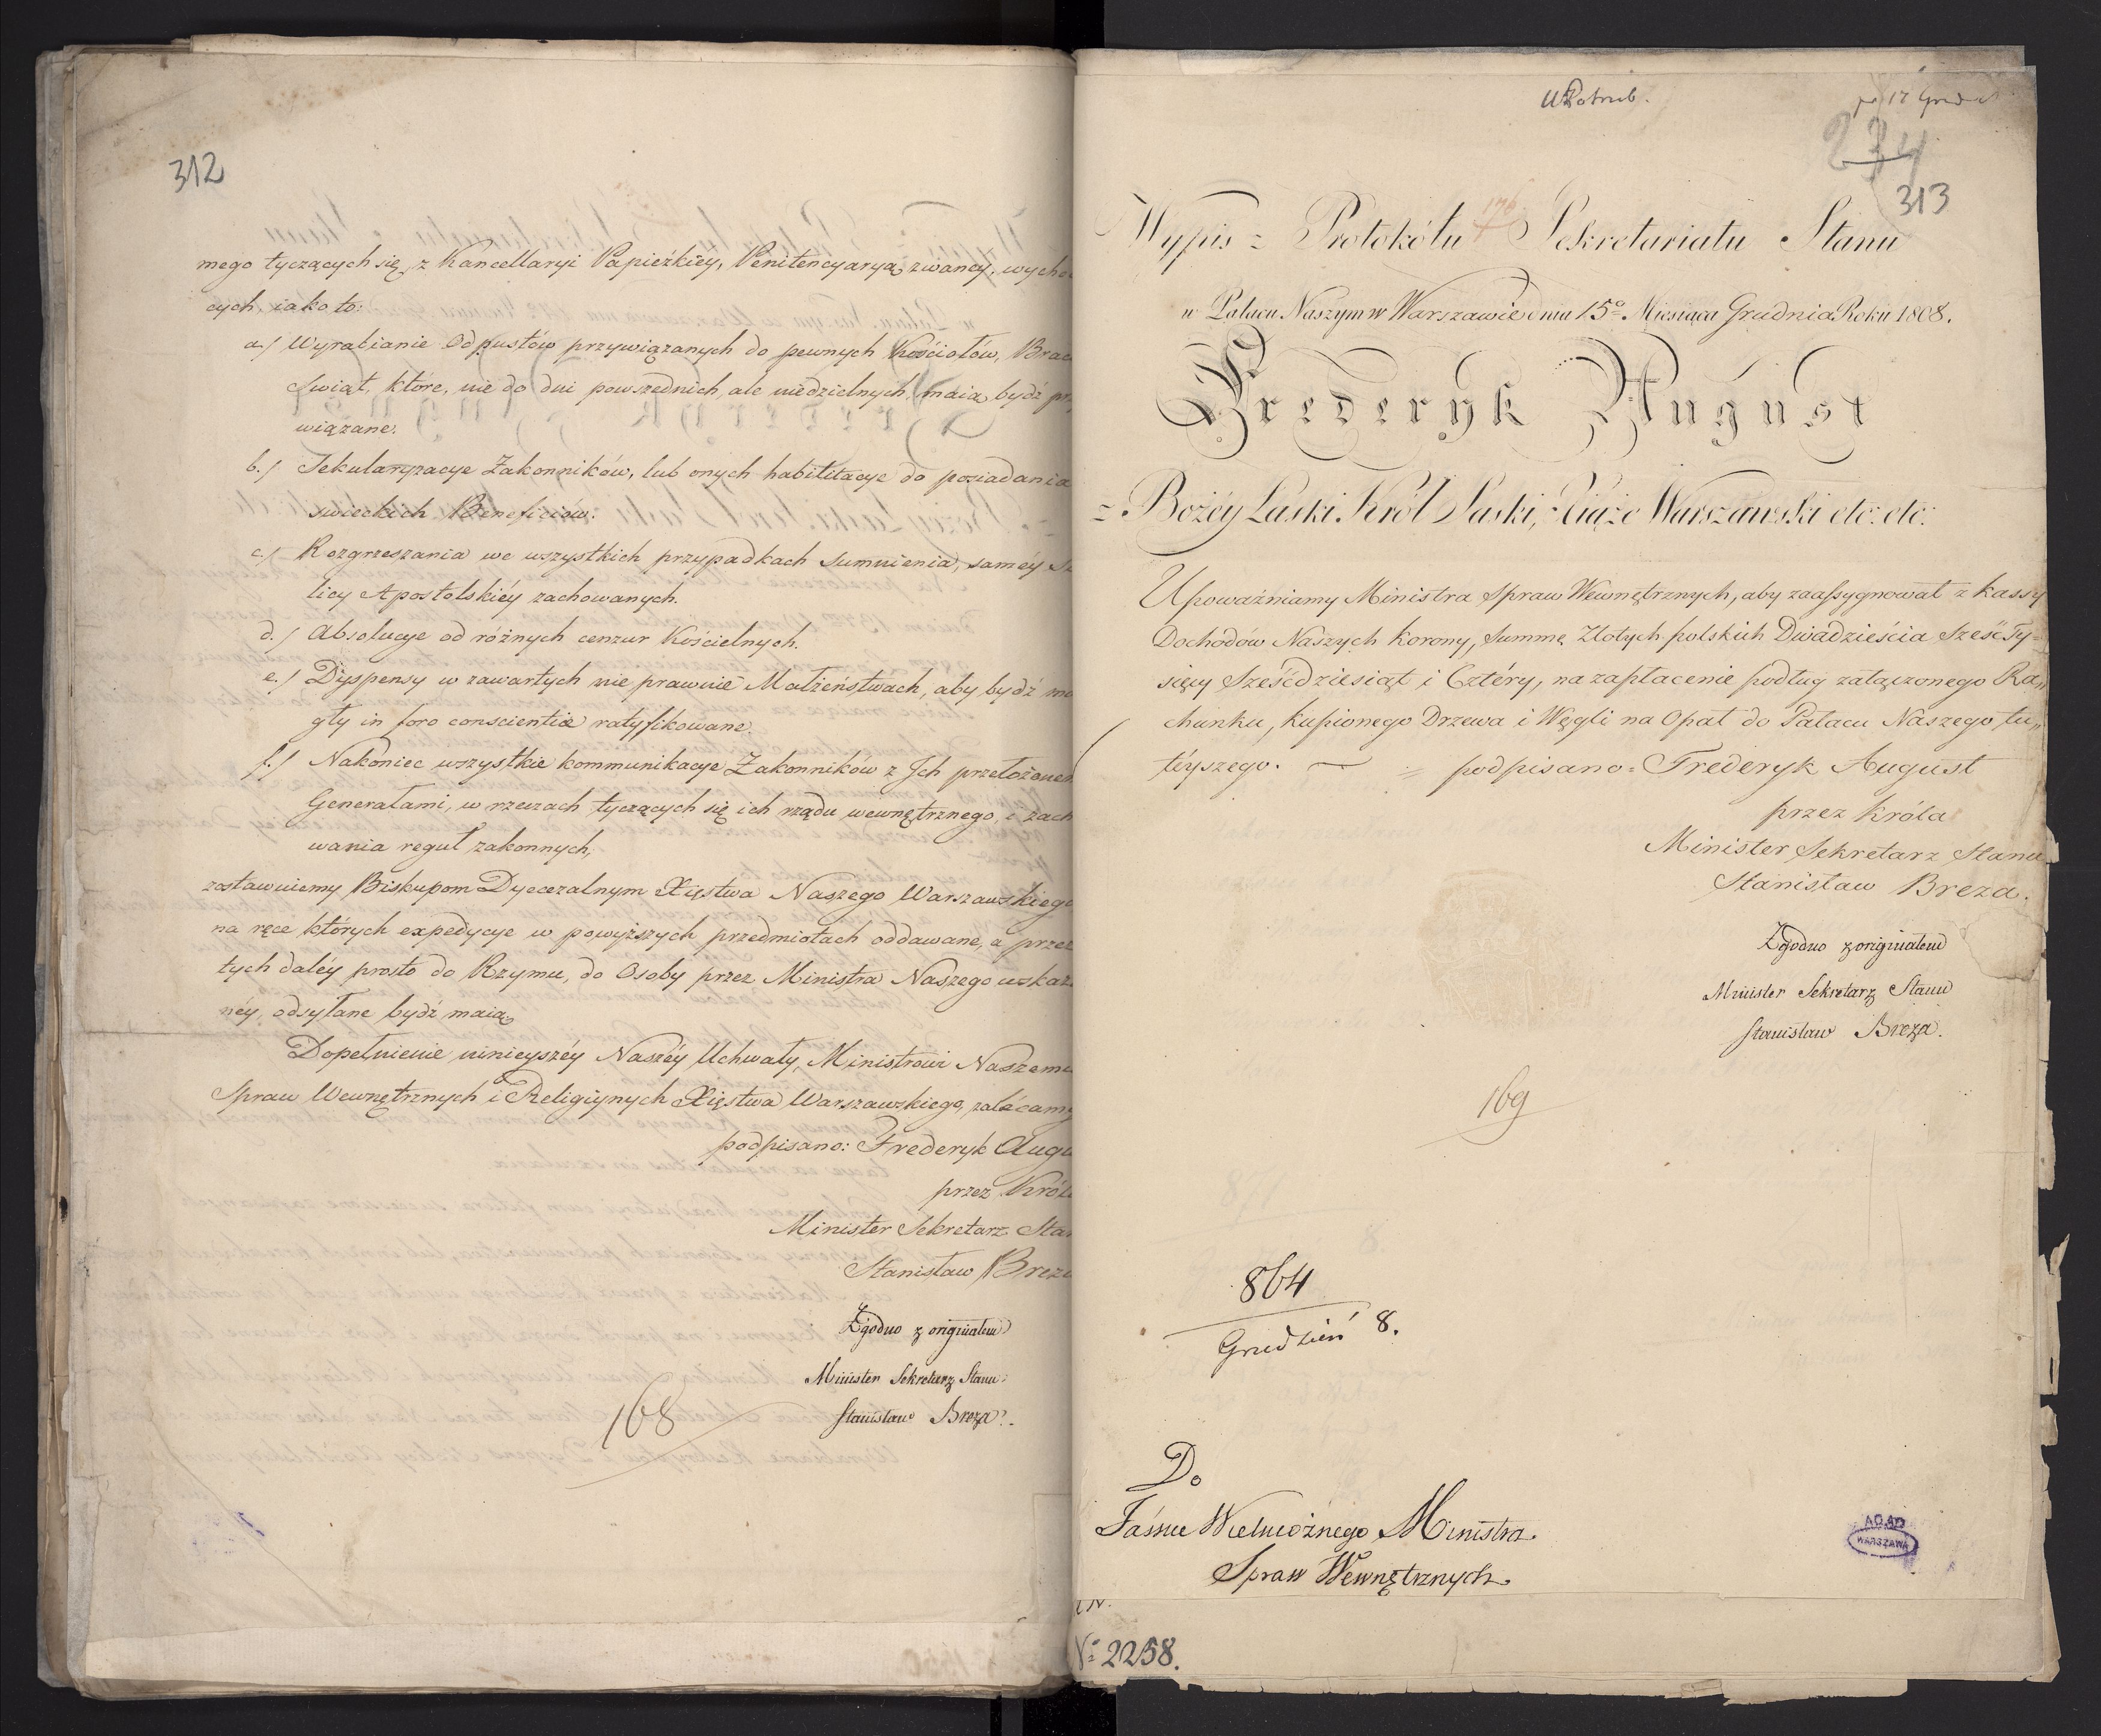 312
mego tyczących się, z Kancellaryi Papiezkiey, Penitencyaryą zwaney, wycho
cych, iako to:
a./ Wyrabianie Odpustów przywiązanych do pewnych Kościołów, Brac
Swiąt, które, nie do dni powszednich, ale niedzielnych, maią bydź prz
wiązane.
b./ Sekularyzacye Zakonników, lub onych habilitacye do posiadania
swieckich Beneficiów.
c./ Rozgrzeszania we wszystkich przypadkach sumnienia, saméy St
licy Apostolskiéy zachowanych.
d./ Absolucye od różnych cenzur Kościelnych.
e./ Dyspensy w zawartych nie prawnie Małżeństwach, aby bydź mo
gły in foro conscientiæ ratyfikowane.
f./ Nakoniec wszystkie kommunikacye Zakonników z Jch przełożonem
Generałami, w rzeczach tyczących się ich rządu wewnętrznego, i zach
wania reguł zakonnych,
zostawuiemy Biskupom Dyecezalnym Xięstwa Naszego Warszawskiego
na ręce których expedycye w powyższych przedmiotach oddawane, a przez
tych daléy prosto do Rzymu, do Osoby przez Ministra Naszego wskaza
néy, odsyłane bydź maią.
Dopełnienie ninieyszéy Naszéy Uchwały, Ministrowi Naszemu
Spraw Wewnętrznych i Religiynych Xięstwa Warszawskiego, zalécamy
podpisano: Frederyk Augu
przez Króla
Minister Sekretarz Stan
Stanisław Breza
Zgodno z originałem
Minister Sekretarz Stanu
Stanisław Breza.
168
17 Grud
234
313
176
Wypis z Protokółu Sekretariatu Stanu
w Pałacu Naszym w Warszawie dniu 15o Miesiąca Grudnia Roku 1808.
Frederyk August
z Bożéy Łaski Król Saski, Xiąże Warszawski etc: etc:
Upoważniamy Ministra Spraw Wewnętrznych, aby zaassygnował z kassy
Dochodów Naszych Korony, Summę Złotych polskich Dwadzieścia Sześć Ty=
sięcy Sześćdziesiąt i Cztéry, na zapłacenie podług załączonego Ra„
chunku, kupionego Drzewa i Węgli na Opał do Pałacu Naszego tu„
téyszego. — = podpisano = Frederyk August
przez Króla
Minister Sekretarz Stanu
Stanisław Breza.
Zgodno z originałem
Minister Sekretarz Stanu
Stanisław Breza.
169
864
Grudzień 8.
Do
Jaśnie Wielmożnego Ministra
Spraw Wewnętrznych.
AGAD
WARSZAWA
No 2258.